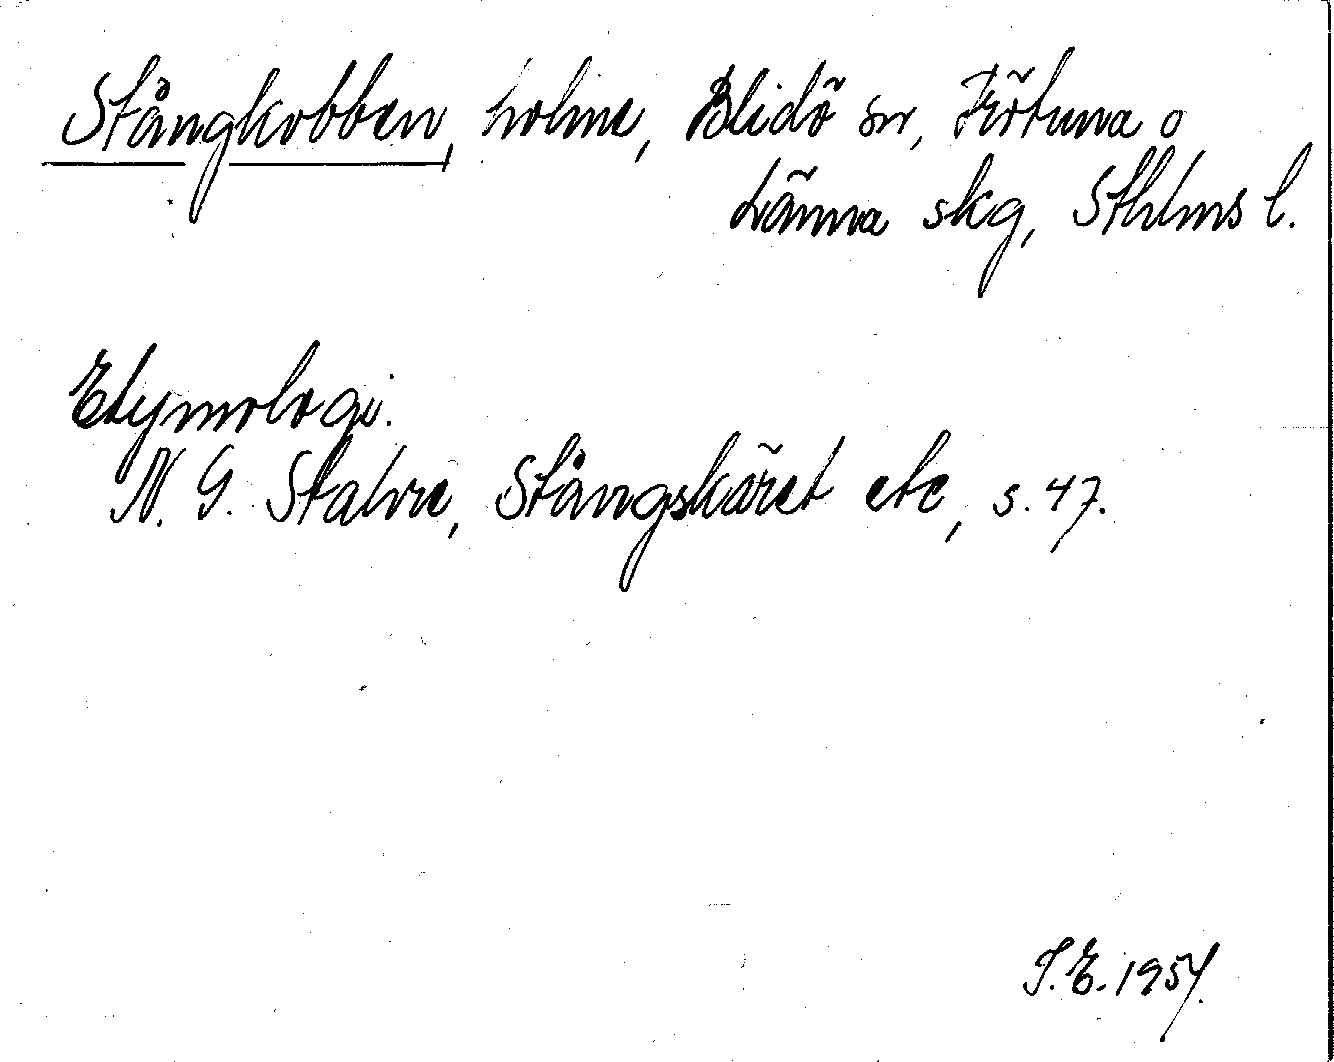 Stångkobben, holme, Blidö sn, Frötuna o
Länna skg, Sthlms l.
Etymologi.
N. G. Stahre, Stångskäret etc, s. 47.
I. E. 1957.